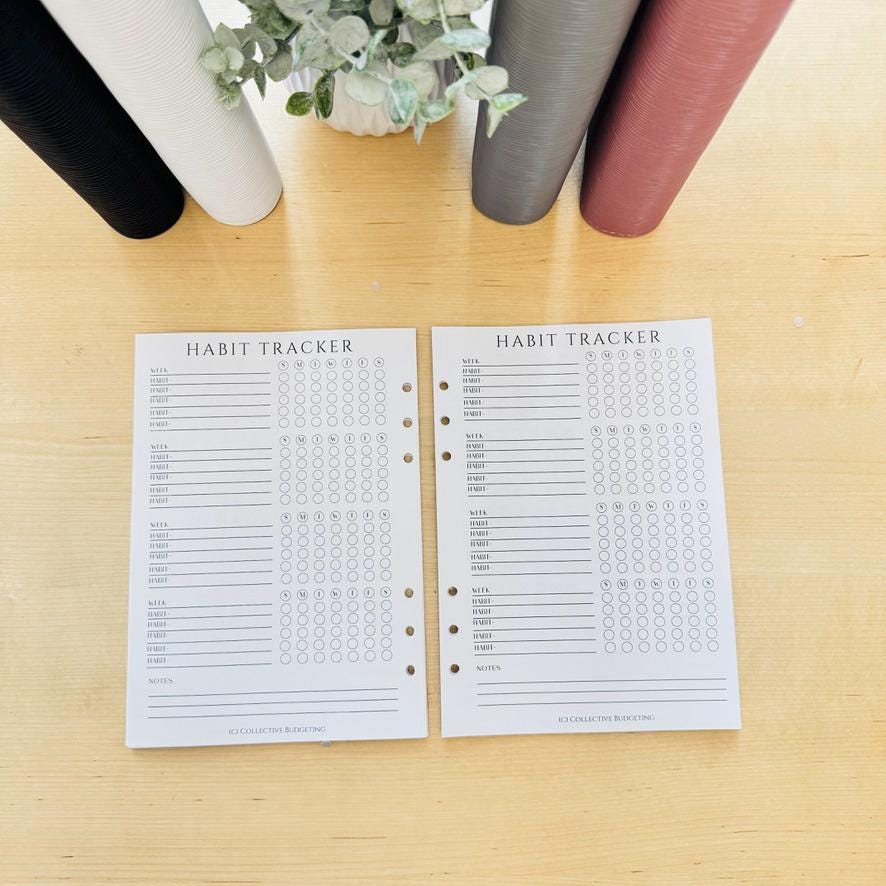 HABIT TRACKER
WEEK S M T W T F S
HABIT-
HABIT-
HABIT-
HABIT-
HABIT-
WEEK S M T W T F S
HABIT-
HABIT-
HABIT-
HABIT-
HABIT-
WEEK S M T W T F S
HABIT-
HABIT-
HABIT-
HABIT-
HABIT-
WEEK S M T W T F S
HABIT-
HABIT-
HABIT-
HABIT-
HABIT-
NOTES
(C) COLLECTIVE BUDGETING
HABIT TRACKER
WEEK S M T W T F S
HABIT-
HABIT-
HABIT-
HABIT-
HABIT-
WEEK S M T W T F S
HABIT-
HABIT-
HABIT-
HABIT-
HABIT-
WEEK S M T W T F S
HABIT-
HABIT-
HABIT-
HABIT-
HABIT-
WEEK S M T W T F S
HABIT-
HABIT-
HABIT-
HABIT-
HABIT-
NOTES
(C) COLLECTIVE BUDGETING